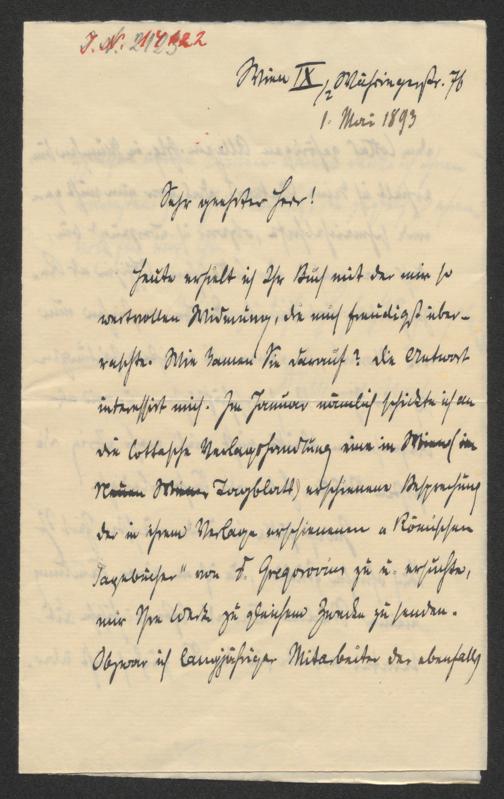 I. N. 17422
Wien IX/2 Währingerstr. 76
1. Mai 1893
Sehr geehrter Herr!
Heute erhielt ich Ihr Buch mit der mir so
wertvollen Widmung, die mich freudigst über-
raschte. Wie kamen Sie darauf? Die Antwort
interessirt mich. Im Januar nämlich schickte ich an
die Cottasche Verlagshandlung eine in Wien (im
Neuen Wiener Tagblatt) erschienene Besprechung
der in ihrem Verlage erschienenen „Römischen
Tagebücher" von F. Gregorovius zu u. ersuchte,
mir Ihre Werke zu gleichem Zwecke zu senden.
Obzwar ich langjähriger Mitarbeiter der ebenfalls